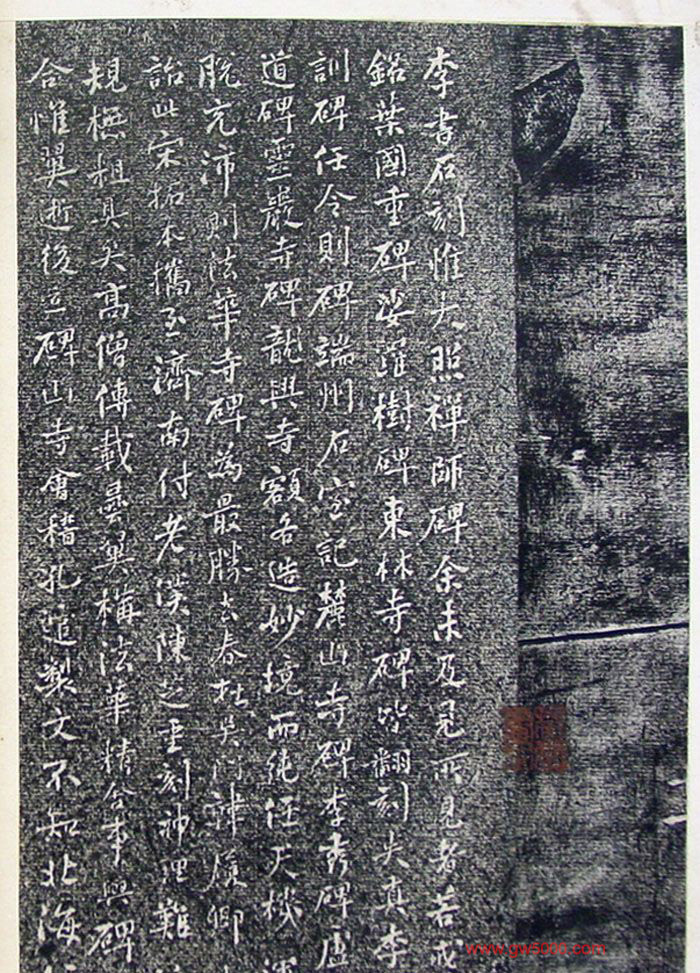 李書石刻惟大照禪師碑余未及見所見者若戒
銘葉國重碑娑羅樹碑東林寺碑皆翻刻失真李
訓碑任令則碑端州石室記麓山寺碑李秀碑盧
道碑靈巖寺碑龍興寺額各造妙境而純任天機
脫充沛則法華寺碑為最勝去春在吳門韓履卿
詒此宋拓本攜至濟南付老漢陳芝重刻神理難
規橅粗具矣高僧傳載曇翼構法華精舍事與碑
合惟翼逝後立碑山寺會稽孔逭製文不知北海
www.gw5000.com